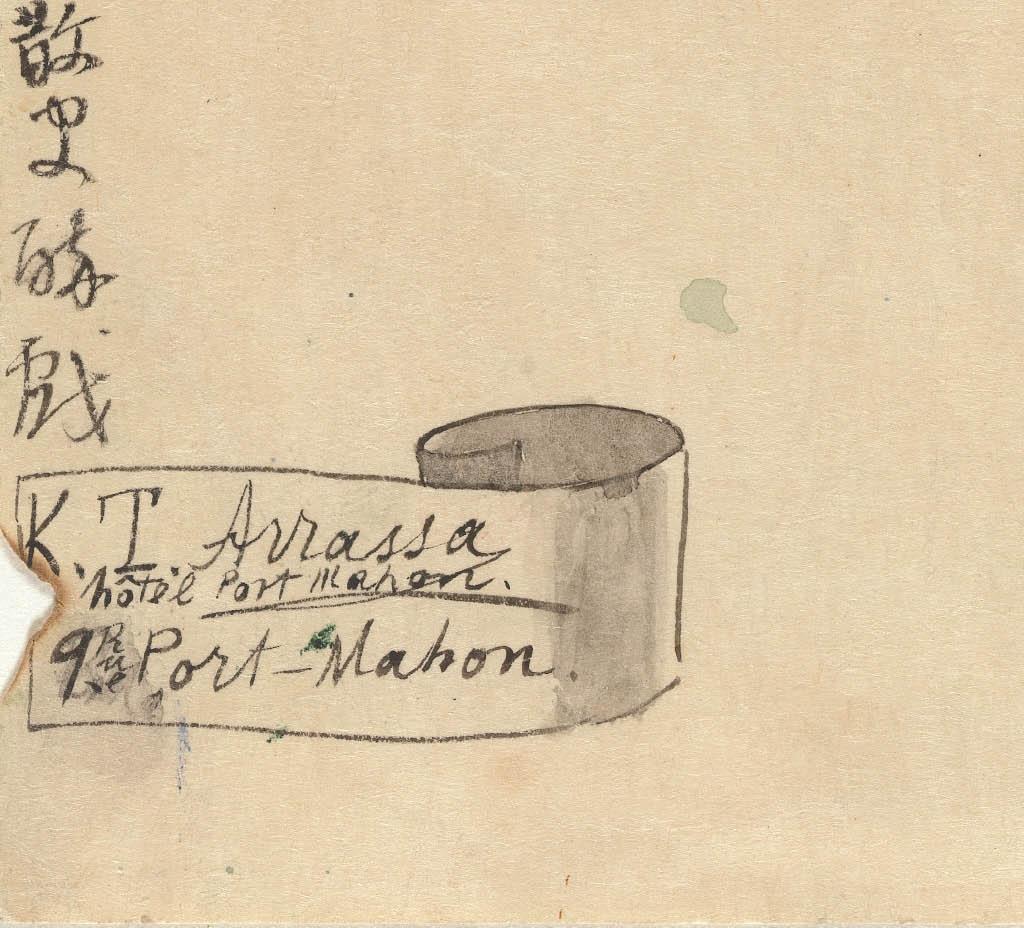 散史酔戯
K. T. Arrassa
hôtel Port Mahon.
9 Rue Port-Mahon.